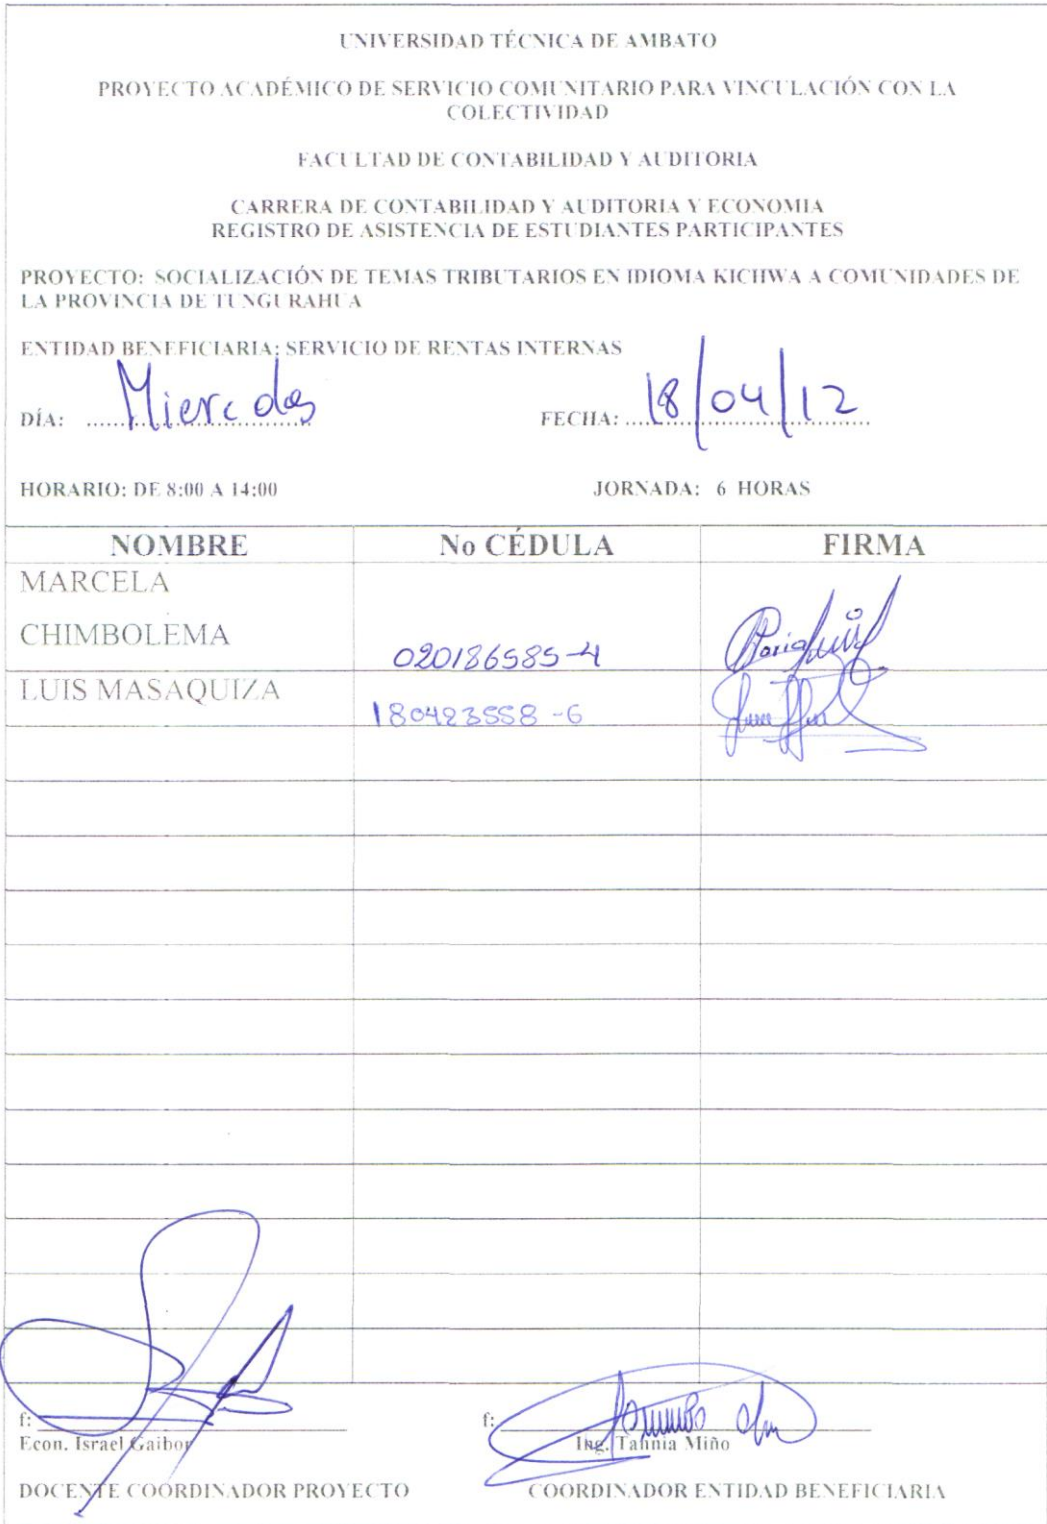 UNIVERSIDAD TÉCNICA DE AMBATO
PROYECTO ACADÉMICO DE SERVICIO COMUNITARIO PARA VINCULACIÓN CON LA
COLECTIVIDAD
FACULTAD DE CONTABILIDAD Y AUDITORIA
CARRERA DE CONTABILIDAD Y AUDITORIA Y ECONOMIA
REGISTRO DE ASISTENCIA DE ESTUDIANTES PARTICIPANTES
PROYECTO: SOCIALIZACIÓN DE TEMAS TRIBUTARIOS EN IDIOMA KICHWA A COMUNIDADES DE
LA PROVINCIA DE TUNGURAHUA
ENTIDAD BENEFICIARIA: SERVICIO DE RENTAS INTERNAS
DÍA: Miercoles FECHA: 18/04/12
HORARIO: DE 8:00 A 14:00 JORNADA: 6 HORAS
NOMBRE No CÉDULA FIRMA
MARCELA
CHIMBOLEMA 020186585-4
LUIS MASAQUIZA 180423558-6
f: f:
Econ. Israel Gaibor Ing. Tannia Miño
DOCENTE COORDINADOR PROYECTO COORDINADOR ENTIDAD BENEFICIARIA